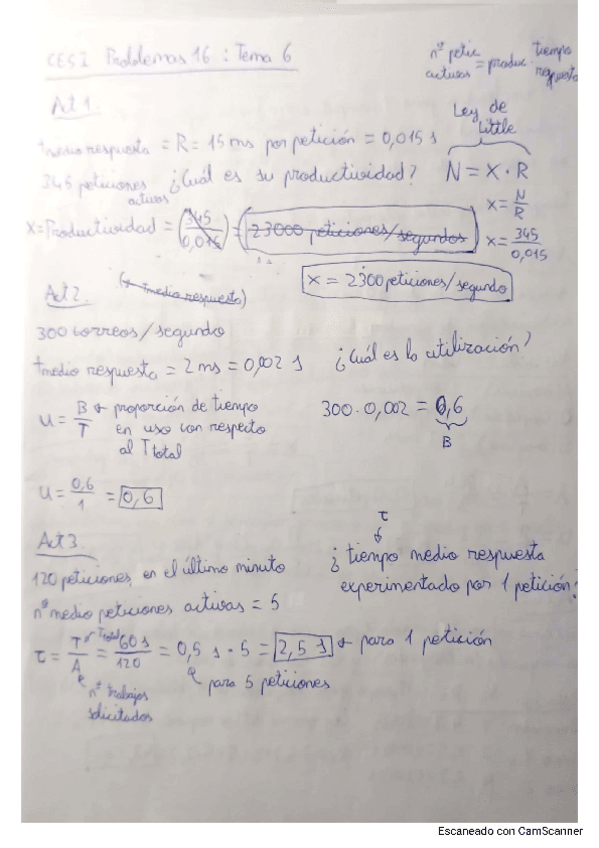 CESI Problemas 16 : Tema 6
nº petic activas = produc. tiempo respuesta
Act 1.
Ley de Little
tmedio respuesta = R = 15 ms por petición = 0,015 s
345 peticiones activas ¿Cuál es su productividad? N = X · R
X = N/R
X = Productividad = (345/0,015) = 23000 peticiones/segundos
X = 345/0,015
X = 2300 peticiones/segundo
Act 2. (x tmedio respuesta)
300 correos/segundo
tmedio respuesta = 2 ms = 0,002 s ¿Cuál es la utilización?
U = B/T proporción de tiempo en uso con respecto al Ttotal
300 · 0,002 = 0,6
B
U = 0,6/1 = 0,6
Act 3.
τ
120 peticiones, en el último minuto ¿tiempo medio respuesta
experimentado por 1 petición?
nº medio peticiones activas = 5
τ = T/A = 60 s/120 = 0,5 s · 5 = 2,5 s para 1 petición
Total
para 5 peticiones
nº trabajos
solicitados
Escaneado con CamScanner